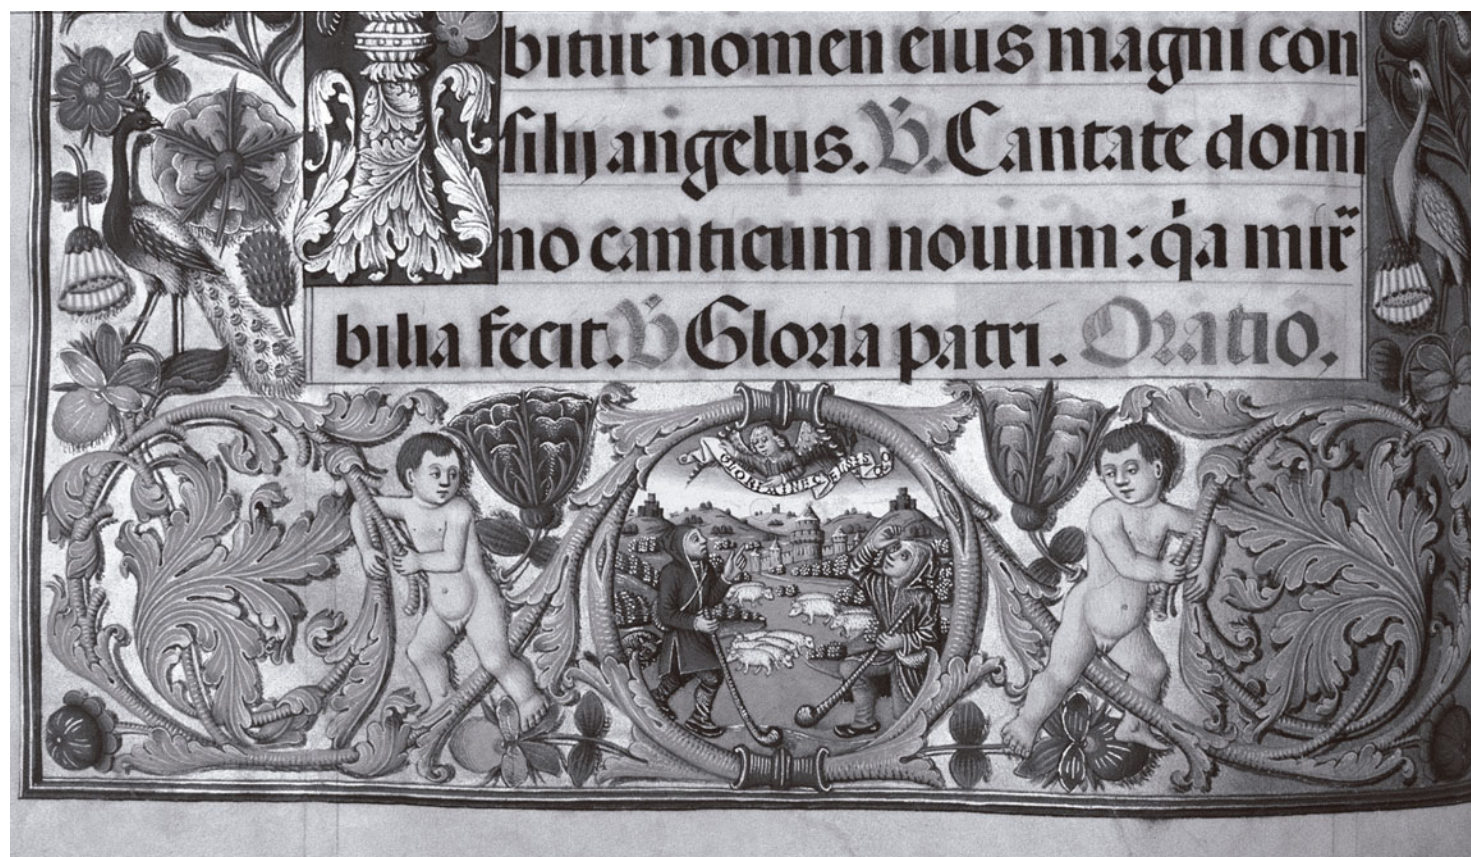 bitur nomen eius magni con
silij angelus. ℣. Cantate domi
no canticum nouum: qͥa mirᵃ
bilia fecit. ℣ Gloria patri. Oratio.